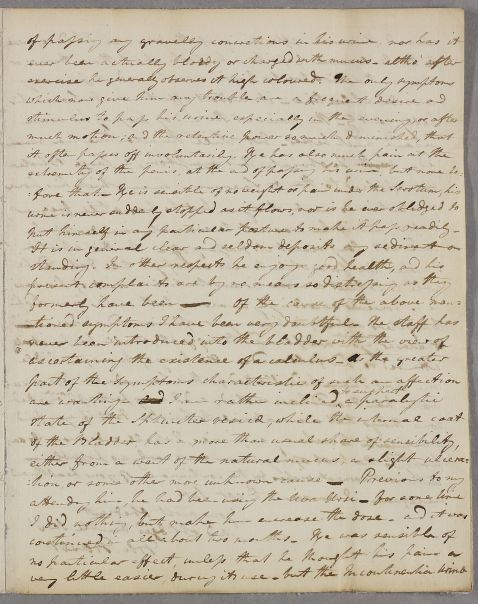 of passing any gravelly concretions in his urine, nor has it
ever been actually bloody or charged with mucus - altho' after
exercise he generally observes it high coloured. The only symptoms
which now give him any trouble are - a frequent desire and
stimulus to pass his urine, especially in the evening, or after
much motion; and the retentive power so much diminished, that
it often passes off involuntarily. He has also much pain at the
extremity of the penis, at the end of passing his urine, but none be-
:fore that. He is sensible of no weight or pain under the Scrotum, his
urine is never suddenly stopped as it flows, nor is he ever obliged to
put himself in any particular posture to make it pass readily -
It is in general clear and seldom deposits any sediment on
standing. In other respects he enjoys good health, and his
present complaints are by no means so distressing as they
formerly have been — of the cause of the above men=
=tioned symptoms I have been very doubtful. The staff has
never been introduced into the bladder with the view of
ascertaining the existence of a calculus. the greater
part of the symptoms characteristic of such an affection
are wanting I am rather inclined a paralytic
state of the Sphincter vesicæ, while the internal coat
of the Bladder has a more than usual share of sensibility,
either from a want of the natural mucus, a slight ulcera-
:tion or some other more unknown cause — Previous to my
attending him he had been using the Uva Ursi - for some time
I did nothing but make him encrease the dose - and it was
continued in all about two months. He was sensible of
no particular effect, unless that he thought his pain a
very little easier during its use - but the Incontinentia Urinæ